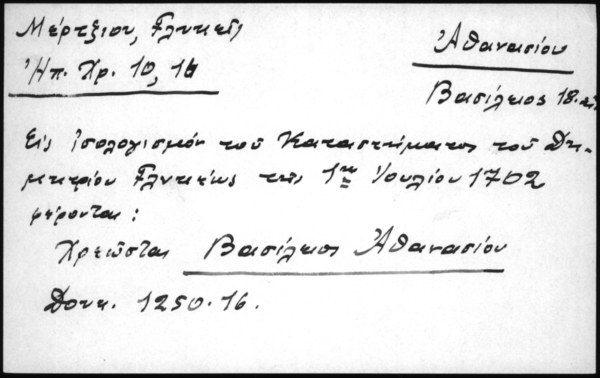 Μέρτζιου, Γλυκεῖς
Ἠπ. Χρ. 10, 16
Ἀθανασίου
Βασίλειος 18. αἰ.
Εἰς ἰσολογισμόν τοῦ Καταστήματος τοῦ Δη-
μητρίου Γλυκέως τῆς 1ης Ἰουλίου 1702
φέρονται:
Χρεῶσται Βασίλειος Ἀθανασίου
Δουκ. 1250.16.